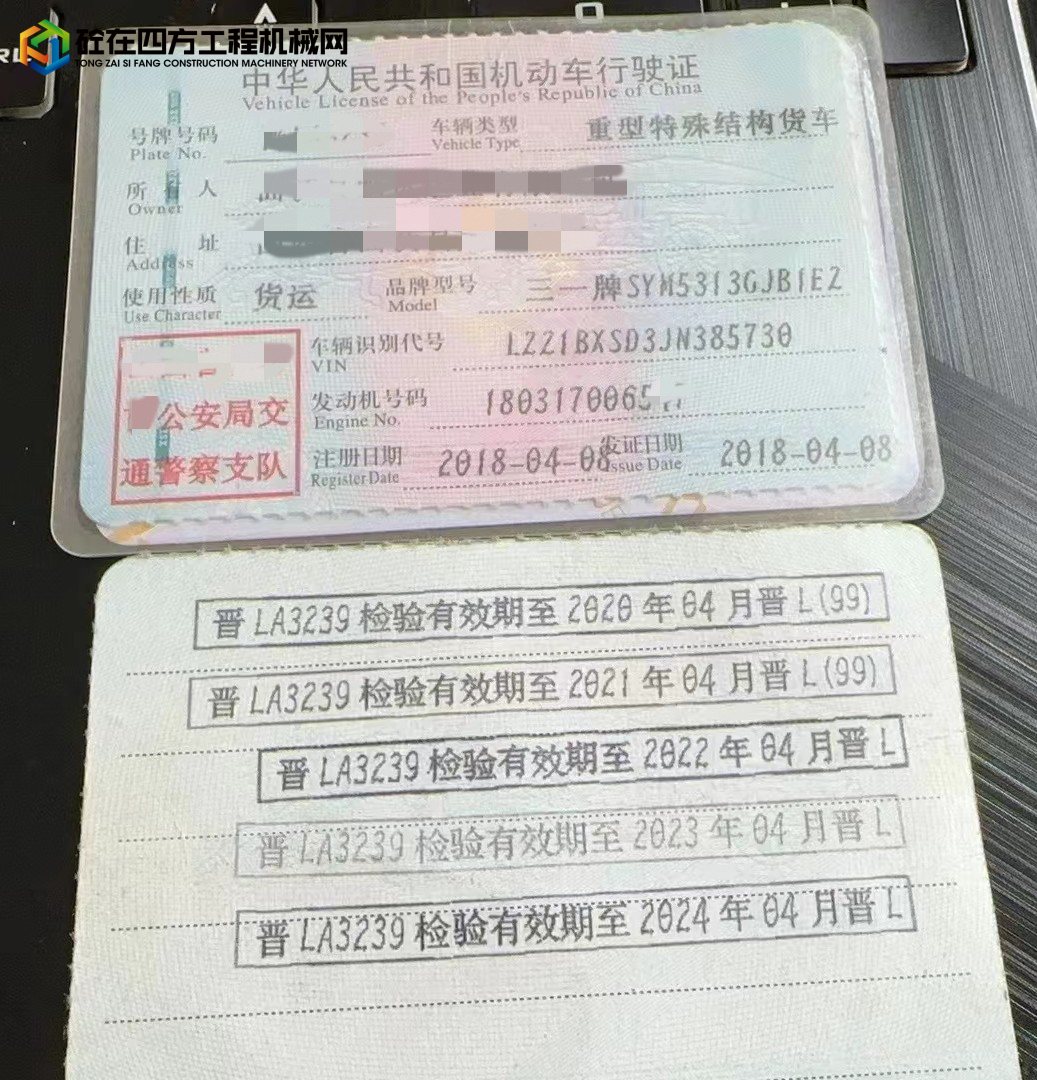 砼在四方工程机械网
TONG ZAI SI FANG CONSTRUCTION MACHINERY NETWORK
中华人民共和国机动车行驶证
Vehicle License of the People's Republic of China
号牌号码 车辆类型 重型特殊结构货车
Plate No. Vehicle Type
所有人
Owner
住址
Address
使用性质 货运 品牌型号 三一牌SYM5313GJB1E2
Use Character Model
车辆识别代号 LZZ1BXSD3JN385730
VIN
发动机号码 1803170065
Engine No.
公安局交
通警察支队
注册日期 2018-04-08 发证日期 2018-04-08
Register Date Issue Date
晋LA3239检验有效期至2020年04月晋L(99)
晋LA3239检验有效期至2021年04月晋L(99)
晋LA3239检验有效期至2022年04月晋L
晋LA3239检验有效期至2023年04月晋L
晋LA3239检验有效期至2024年04月晋L